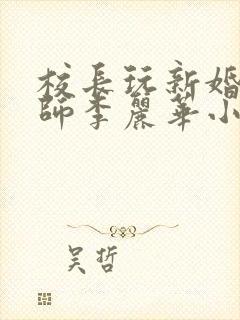 校長玩新婚
師李麗華小
吴哲